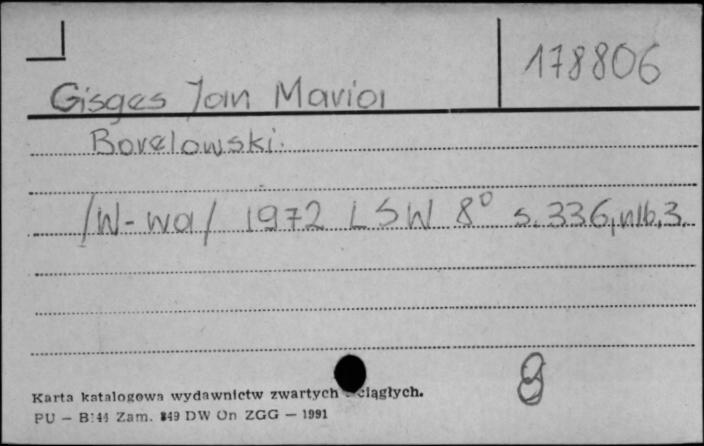 178806
Gisges Jan Maria
Borelowski.
/W-wa/ 1972 LSW 8° s. 336, nlb. 3.
8
Karta katalogowa wydawnictw zwartych ciągłych.
PU — B:44 Zam. 849 DW On ZGG — 1991